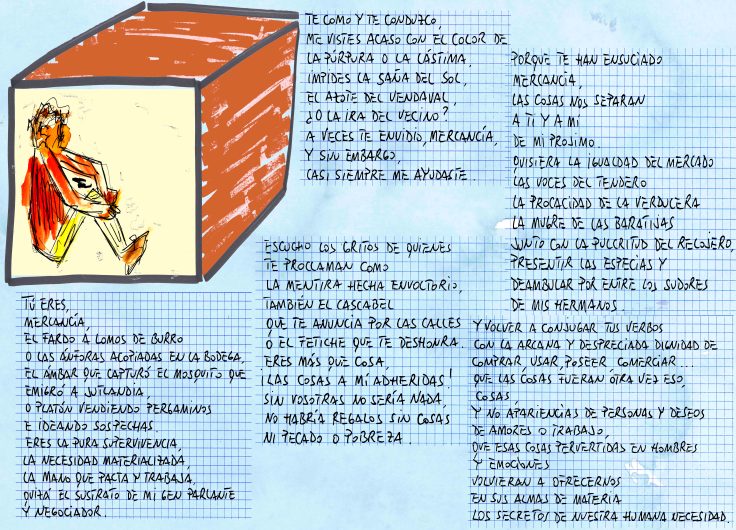 TÚ ERES,
MERCANCÍA,
EL FARDO A LOMOS DE BURRO
O LAS ÁNFORAS ACOPIADAS EN LA BODEGA,
EL ÁMBAR QUE CAPTURÓ EL MOSQUITO QUE
EMIGRÓ A JUTLANDIA,
O PLATÓN VENDIENDO PERGAMINOS
E IDEANDO SOSPECHAS.
ERES LA PURA SUPERVIVENCIA,
LA NECESIDAD MATERIALIZADA,
LA MANO QUE PACTA Y TRABAJA,
QUIZÁ EL SUSTRATO DE MI GEN PARLANTE
Y NEGOCIADOR.
TE COMO Y TE CONDUZCO,
ME VISTES ACASO CON EL COLOR DE
LA PÚRPURA O LA LÁSTIMA,
IMPIDES LA SAÑA DEL SOL,
EL AZOTE DEL VENDAVAL,
¿O LA IRA DEL VECINO?
A VECES TE ENVIDIO, MERCANCÍA,
Y SIN EMBARGO,
CASI SIEMPRE ME AYUDASTE.
ESCUCHO LOS GRITOS DE QUIENES
TE PROCLAMAN COMO
LA MENTIRA HECHA ENVOLTORIO,
TAMBIÉN EL CASCABEL
QUE TE ANUNCIA POR LAS CALLES
O EL FETICHE QUE TE DESHONRA.
ERES MÁS QUE COSA,
¡LAS COSAS A MÍ ADHERIDAS!
SIN VOSOTRAS NO SERÍA NADA,
NO HABRÍA REGALOS SIN COSAS
NI PECADO O POBREZA.
PORQUE TE HAN ENSUCIADO
MERCANCÍA,
LAS COSAS NOS SEPARAN
A TI Y A MÍ
DE MI PROSIMO.
QUISIERA LA IGUALDAD DEL MERCADO
LAS VOCES DEL TENDERO
LA PROCACIDAD DE LA VERDULERA
LA MUGRE DE LAS BARATIJAS
JUNTO CON LA PULCRITUD DEL RELOJERO,
PRESENTIR LAS ESPECIAS Y
DEAMBULAR POR ENTRE LOS SUDORES
DE MIS HERMANOS.
Y VOLVER A CONJUGAR TUS VERBOS
CON LA ARCANA Y DESPRECIADA DIGNIDAD DE
COMPRAR, USAR, POSEER COMERCIAR...
QUE LAS COSAS FUERAN OTRA VEZ ESO,
COSAS,
Y NO APARIENCIAS DE PERSONAS Y DESEOS
DE AMORES O TRABAJO,
QUE ESAS COSAS PERVERTIDAS EN HOMBRES
Y EMOCIONES
VOLVIERAN A OFRECERNOS
EN SUS ALMAS DE MATERIA
LOS SECRETOS DE NUESTRA HUMANA NECESIDAD.